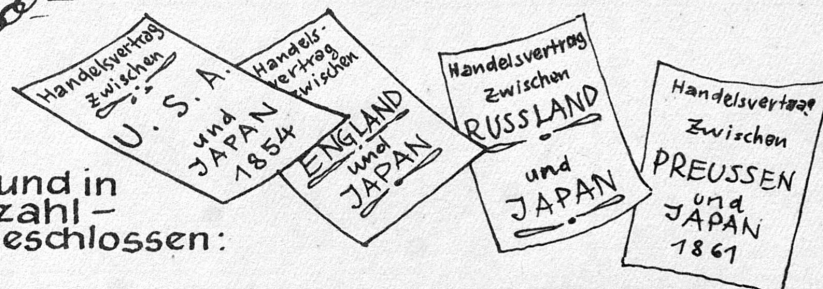 Handelsvertrag
zwischen
U.S.A.
und
JAPAN
1854
Handels-
vertrag
zwischen
ENGLAND
und
JAPAN
Handelsvertrag
zwischen
RUSSLAND
und
JAPAN
Handelsvertrag
zwischen
PREUSSEN
und
JAPAN
1861
und in
zahl –
eschlossen: